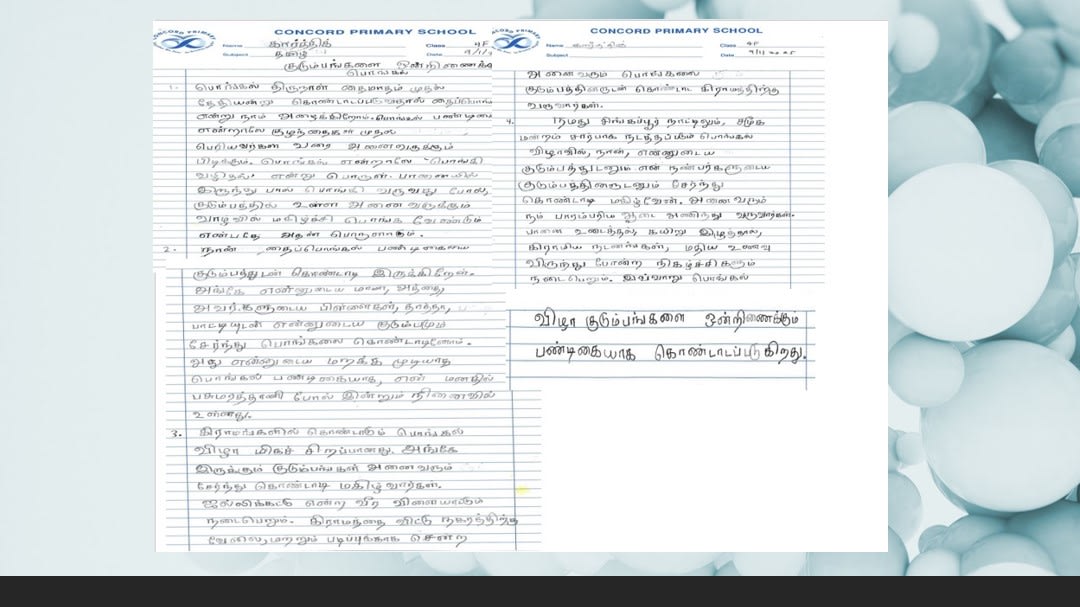 CONCORD PRIMARY SCHOOL
Name கார்த்திக்
Class 4F
Subject தமிழ்
Date 9/1/2
குடும்பங்களை ஒன்றிணைக்கு
பொங்கல்
1. பொங்கல் திருநாள் தைமாதம் முதல்
தேதியன்று கொண்டாடப்படுவதால் தைப்பொங்
என்று நாம் அழைக்கிறோம். பொங்கல் பண்டிகை
என்றாலே குழந்தைகள் முதல்
பெரியவர்கள் வரை அனைவருக்கும்
பிடிக்கும். பொங்கல் என்றாலே "பொங்கி
வழிதல்" என்று பொருள். பானையில்
இருந்து பால் பொங்கி வருவது போல,
குடும்பத்தில் உள்ள அனைவருக்கும்
வாழ்வில் மகிழ்ச்சி பொங்க வேண்டும்
என்பதே அதன் பொருளாகும்.
2. நான் தைப்பொங்கல் பண்டிகையை
குடும்பத்துடன் கொண்டாடி இருக்கிறேன்.
அங்கே என்னுடைய மாமா, அத்தை,
அவர்களுடைய பிள்ளைகள், தாத்தா,
பாட்டியுடன் என்னுடைய குடும்பமும்
சேர்ந்து பொங்கலை கொண்டாடினோம்.
அது என்னுடைய மறக்க முடியாத
பொங்கல் பண்டிகையாக, என் மனதில்
பசுமரத்தாணி போல் இன்றும் நினைவில்
உள்ளது.
3. கிராமங்களில் கொண்டாடும் பொங்கல்
விழா மிகச் சிறப்பானது. அங்கே
இருக்கும் குடும்பங்கள் அனைவரும்
சேர்ந்து கொண்டாடி மகிழ்வார்கள்.
ஜல்லிக்கட்டு என்ற வீர விளையாட்டும்
நடைபெறும். கிராமத்தை விட்டு நகரத்திற்கு
வேலை, மற்றும் படிப்புக்காக சென்ற
CONCORD PRIMARY SCHOOL
Name கார்த்திக்
Class 4F
Subject
Date 9/1/2025
அனைவரும் பொங்கலை
குடும்பத்தினருடன் கொண்டாட கிராமத்திற்கு
வருவார்கள்.
4. நமது சிங்கப்பூர் நாட்டிலும், சமூக
மன்றம் சார்பாக நடத்தப்படும் பொங்கல்
விழாவில், நான், என்னுடைய
குடும்பத்துடனும் என் நண்பர்களுடைய
குடும்பத்தினருடனும் சேர்ந்து
கொண்டாடி மகிழ்வேன். அனைவரும்
நம் பாரம்பரிய ஆடை அணிந்து வருவார்கள்.
பானை உடைத்தல், கயிறு இழுத்தல்,
கிராமிய நடனங்கள், மதிய உணவு
விருந்து போன்ற நிகழ்ச்சிகளும்
நடைபெறும். இவ்வாறு பொங்கல்
விழா குடும்பங்களை ஒன்றிணைக்கும்
பண்டிகையாக கொண்டாடப்படுகிறது.